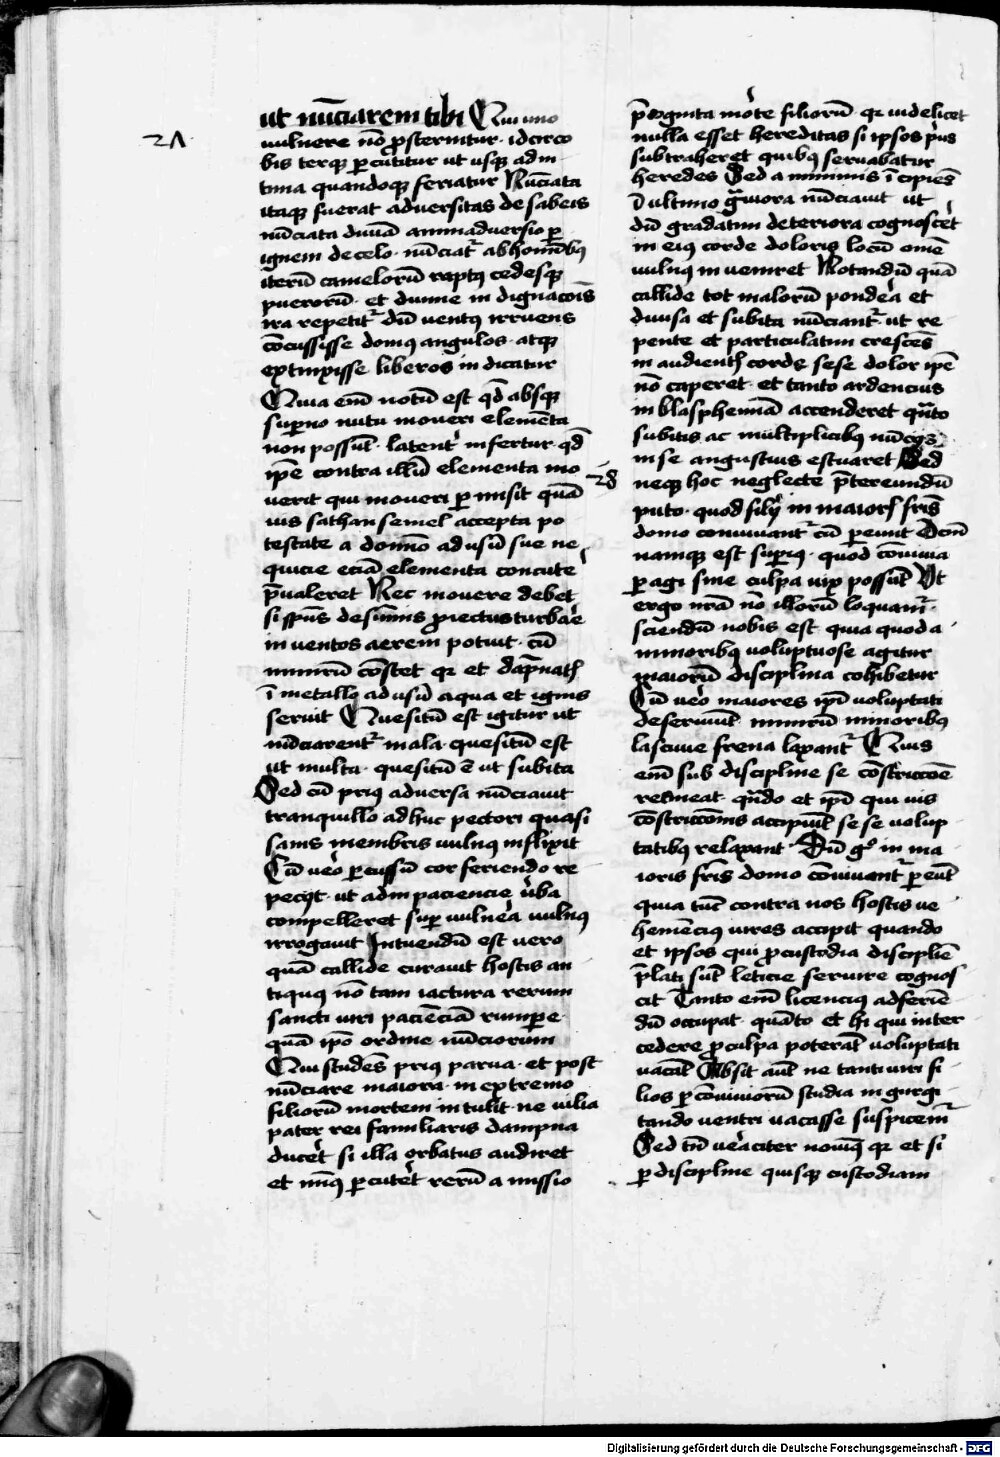 ut nūciarem tibi Qui uno
vulnere nō ꝓsternitur · idcirco
bis terqꝫ ꝑcutitur ut usqꝫ ad in
tima quandoqꝫ feriatur Nūciata
itaqꝫ fuerat adversitas de sabeis
nūciata divīa animadversio ꝑ
ignem de celo · nūciat᷑ ab hominibꝫ
iterū camelorū raptꝫ cedesqꝫ
puerorū · et divine indignacōis
ira repetit᷑ dū ventꝫ irruens
cōcussisse domꝫ angulos · atqꝫ
extinxisse liberos indicatur
Quia eniꝫ notū est qd absqꝫ
suꝑno nutu moveri elemēta
non possūt · latent᷑ infertur · qd
ipē contra illū elementa mo
verit qui moveri ꝑmisit quā
vis sathan semel accepta po
testate a domīo ad usū sue ne
quicie eciā elementa concute᷑
p̄valeret Nec movere debet
si sp̄us de sūmis ꝓiectus turbar᷑e
in ventos aerem potuit · cū
nimirū cōstet qꝛ et dāpnatis
ī metallo ad usū aqua et ignis
servit Quesitū est igitur ut
nūciarent᷑ mala · quesitū est
ut multa · quesitū ē ut subita
Sed cū priꝫ adversa nūciavit
tranquillo adhuc pectori quasi
sanis membris vulnꝫ inflixit
Cū vero ꝑcussū cor feriendo re
petijt · ut ad inpaciencie v᷑ba
compelleret suꝑ vulnera vulnꝫ
irrogavit Intuendū est vero
quā callide curavit hostis an
tiquꝫ nō tam iactura rerum
sancti viri paciēciā rumpere
quā ipō ordine nūciorum
Qui studēs priꝫ parva · et post
nūciare maiora · in extremo
filiorū mortem intulit · ne vilia
pater rei familiaris dampna
ducer᷑et si illa orbatus audiret
et minꝫ ꝑcuter᷑et rerū amissio
p̄cognita mor᷑te filiorū · qꝛ videlicet
nulla esset hereditas si ipsos priꝫ
subtraheret quibꝫ servabatur
heredes Sed a minimis īcipiēs
ī ultimo gͣviora nūciavit ut
dū gradatim deteriora cognoscer᷑et
in eiꝫ corde doloris locū omē
vulnꝫ inveniret Notandū quā
callide tot malorū pondera et
divisa et subita nūciant᷑ · ut re
pente et particulatim crescēs
in audientis corde sese dolor ipē
nō caperet · et tanto ardencius
in blasphemiā accenderet quͣto
subitis ac multiplicibꝫ nūcijs
in se angustius estuaret Sed
neqꝫ hoc neglecte p̄tereundū
puto · quod filij in maioris frīs
domo convivant᷑ cū ꝑeunt Dcm̄
namqꝫ est suꝑiꝫ · quod cōvivia
ꝑagi sine culpa vix possūt Ut
ergo nrā nō illorū loquamr᷑ ·
sciendū nobis est quia quod a
minoribꝫ voluptuose agitur
maiorū disciplina cohibetur
Cū vero maiores ipī voluptati
deserviunt nimirū minoribꝫ
lascivie frena laxant᷑ Quis
eniꝫ sub discipline se cōstriccōe
retineat · qn̄do et ipī qui ius
cōstriccōnis accipiūt sese volup
tatibꝫ relaxant · Dū gͦ in ma
ioris frīs domo cōvivant᷑ ꝑeūt
quia tūc contra nos hostis ve
hemēciꝫ vires accipit quando
et ipsos qui ꝓ custodia disciplīe
p̄lati sūt leticie servire cognos
cit Tanto eniꝫ licenciꝫ ad feriē
dū occupat · quāto et hi qui inter
cedere ꝓ culpa poterāt voluptati
vacāt Absit aūt ne tanti viri fi
lios ꝑ conviviorū studia ingurgi
tando ventri vacasse suspicemr᷑
Sed tn̄ veraciter novimꝫ qꝛ et si
ꝑ discipline quisqꝫ custodiam
Digitalisierung gefördert durch die Deutsche Forschungsgemeinschaft - DFG